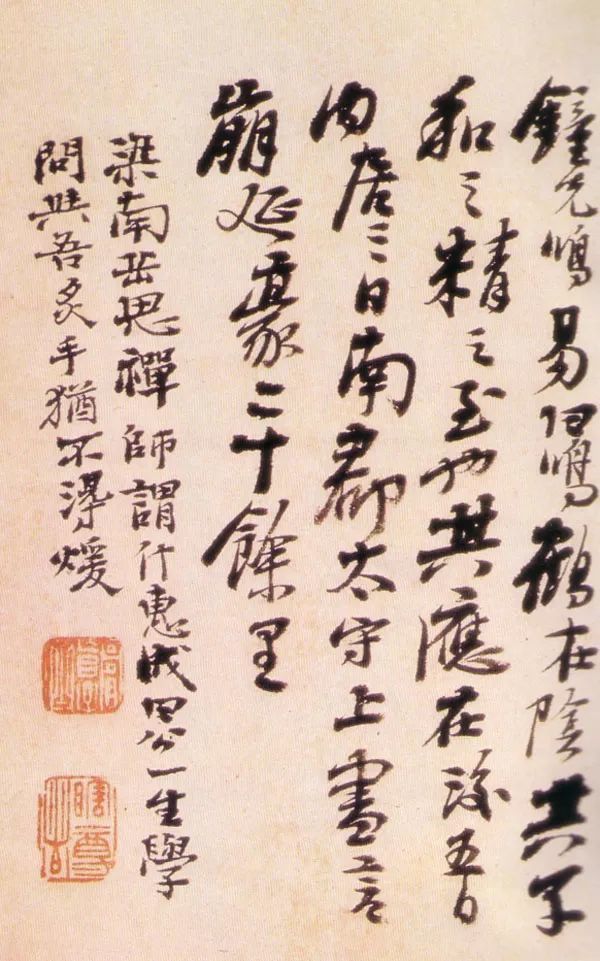 鐘先鳴易曰鳴鶴在陰其子
和之精之至也其應在後五日
内居三日南郡太守上書言
崩延袤二十餘里
梁南岳思禪師謂什惠成曰公一生學
問與吾炙手猶不得煖
瞎尊者